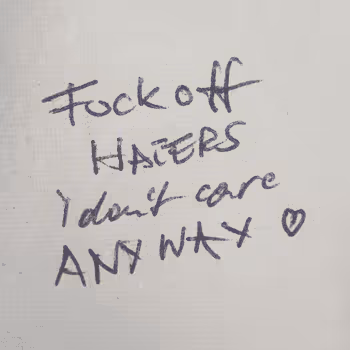 Fuck off
HATERS
I don't care
ANYWAY ♡